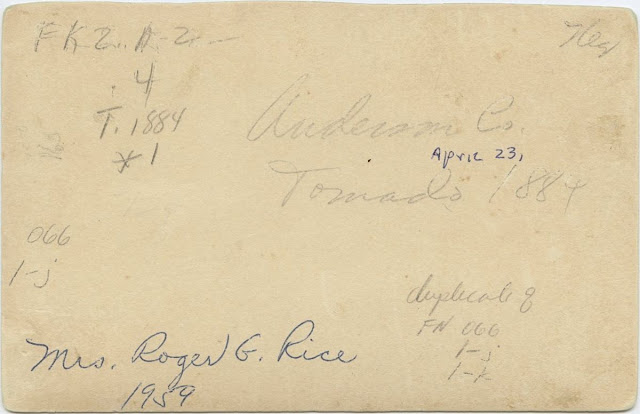 FK2.A-2
.4
T.1884
*1
Neg
Anderson Co.
April 23,
Tornado 1884
066
1-j
duplicate of
FN 066
1-j
Mrs. Roger G. Rice
1959